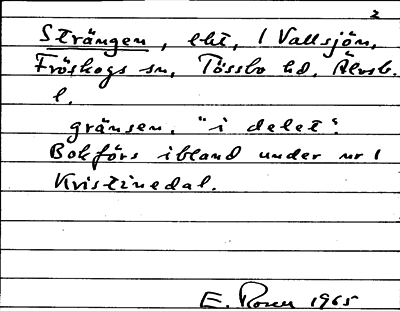 2
Strängen, lht, 1 Vallsjön,
Fröskogs sn, Tössbo hd, Älvsb.
l.
gränsen. "i delet".
Bokförs ibland under nr 1
Kristinedal.
E. 1965